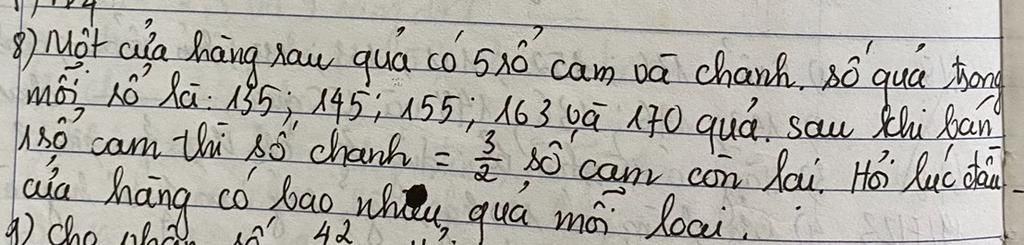 8) Một cửa hàng rau quả có 5 rổ cam và chanh. số quả trong
mỗi rổ là: 135; 145; 155; 163 và 170 quả. sau khi bán
1 rổ cam thì số chanh = 3/2 số cam còn lại. Hỏi lúc đầu
cửa hàng có bao nhiêu quả mỗi loại.
9) Cho phân số 42